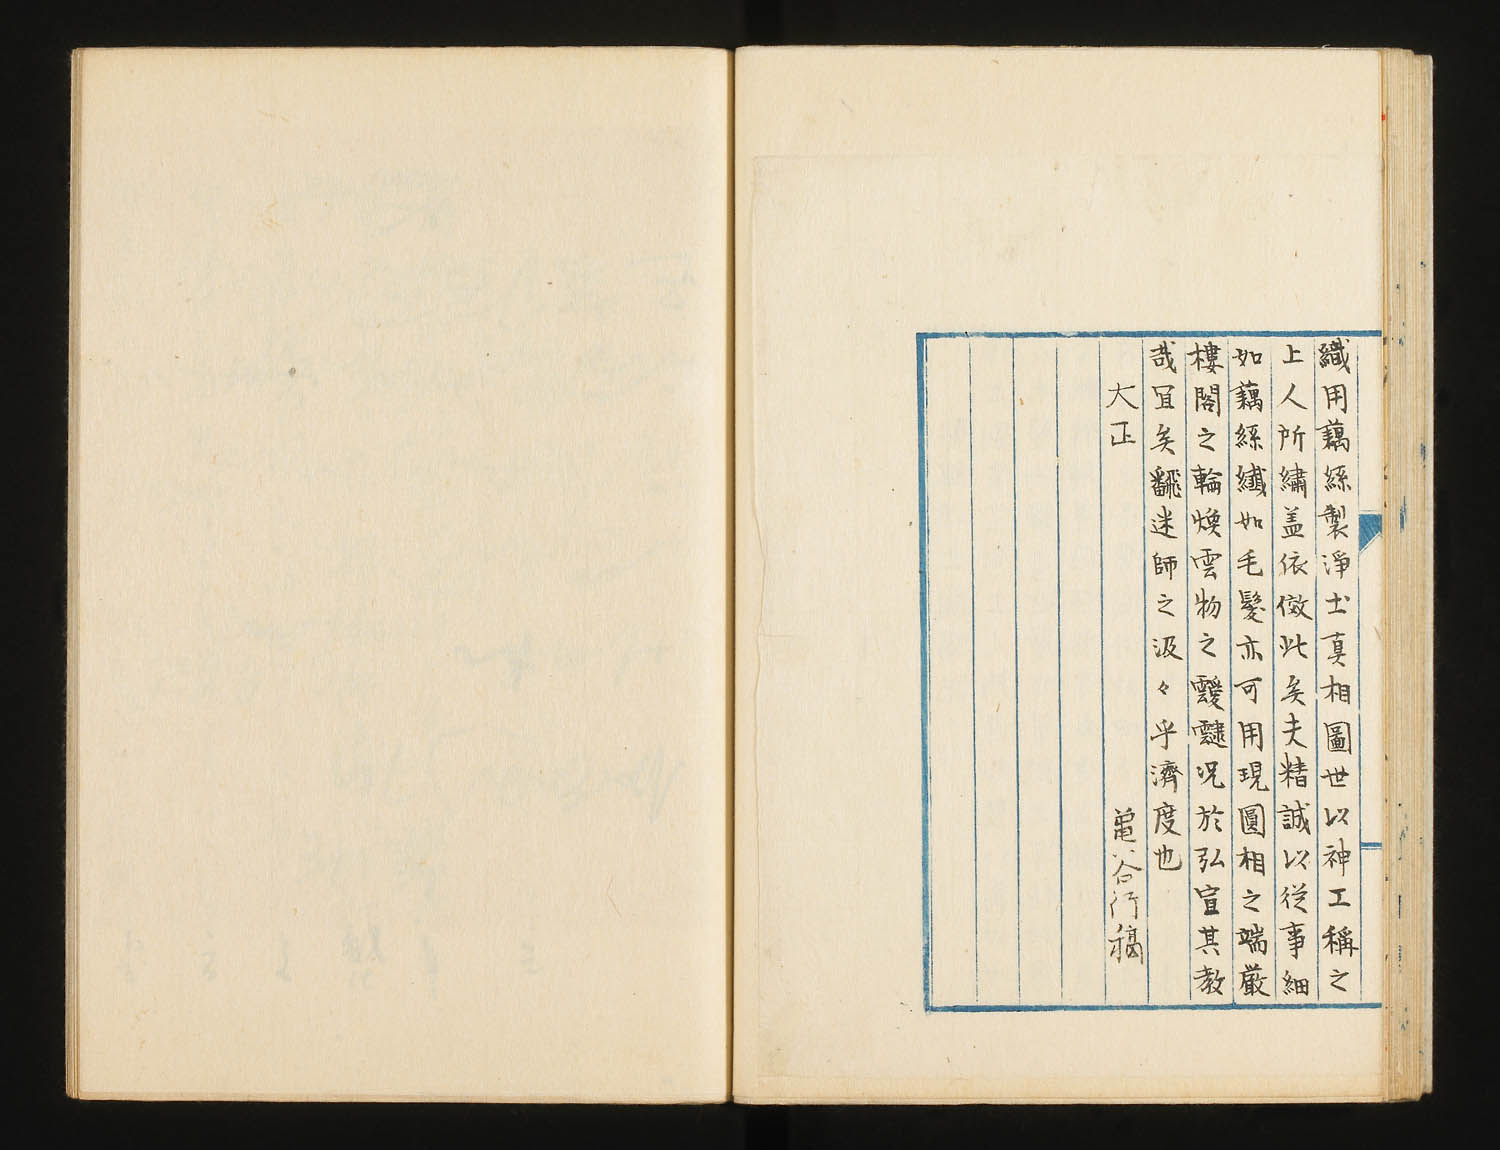 織用藕絲製淨土真相圖世以神工稱之
上人所繡盖依倣此矣夫精誠以從事細
如藕絲纎如毛髮亦可用現圓相之端厳
樓閣之輪煥雲物之靉靆况於弘宣其教
哉冝矣飜迷師之汲々乎濟度也
大正
亀谷行稿